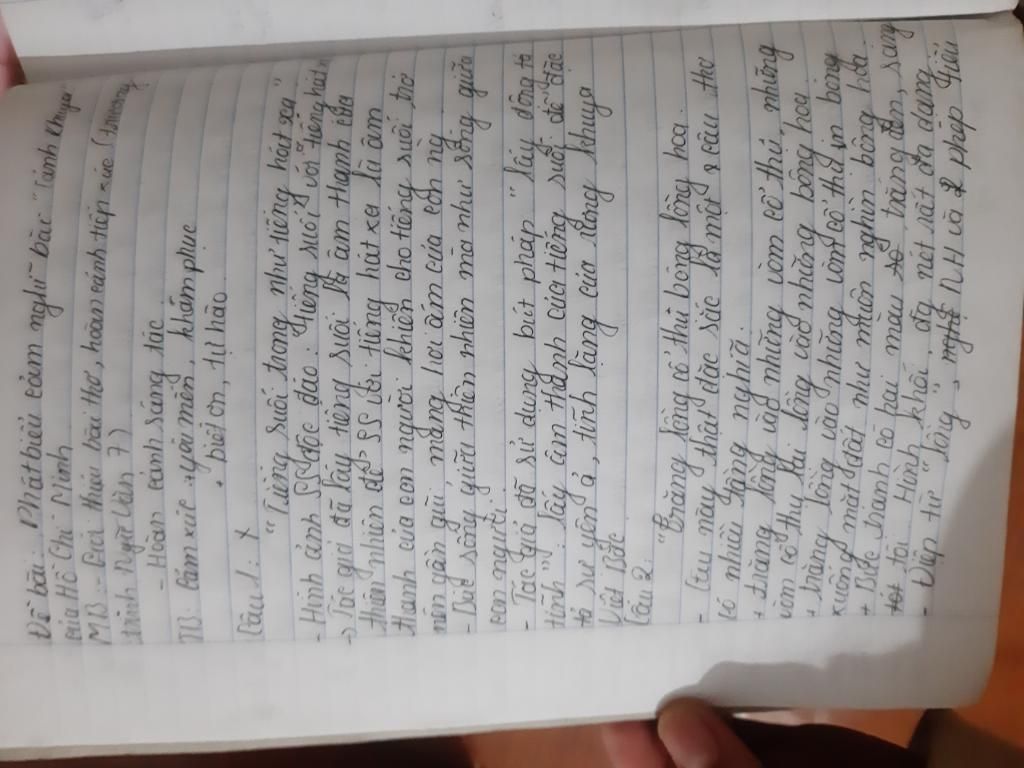 Đề bài: Phát biểu cảm nghĩ bài "Cảnh khuya"
của Hồ Chí Minh
MB: - Giới thiệu bài thơ, hoàn cảnh tiếp xúc (trong
trình Ngữ Văn 7)
- Hoàn cảnh sáng tác
TB: Cảm xúc + yêu mến, khâm phục
+ biết ơn, tự hào
Câu 1:
"Tiếng suối trong như tiếng hát xa"
- Hình ảnh SS độc đáo: Tiếng suối với tiếng hát
→ Tác giả đã lấy tiếng suối là âm thanh của
thiên nhiên để SS với tiếng hát xa là âm
thanh của con người khiến cho tiếng suối trở
nên gần gũi mang hơi ấm của con ng
- Bác sống giữa thiên nhiên mà như sống giữa
con người.
- Tác giả đã sử dụng bút pháp "lấy động tả
tĩnh": lấy âm thanh của tiếng suối để đặc
tả sự yên ả, tĩnh lặng của rừng khuya
Việt Bắc
Câu 2:
"Trăng lồng cổ thụ bóng lồng hoa.
- Câu này thật đặc sắc là một câu thơ
có nhiều tầng nghĩa.
+ trăng lồng vào những vòm cổ thụ, những
vòm cổ thụ lại lồng vào những bông hoa
+ trăng lồng vào những vòm cổ thụ in bóng
xuống mặt đất như muôn nghìn bông hoa.
+ Bức tranh có hai màu trắng đen, sáng
tối. Hình khối, đường nét rất đa dạng
- Điệp từ "lồng", NH và 2 phép tiểu